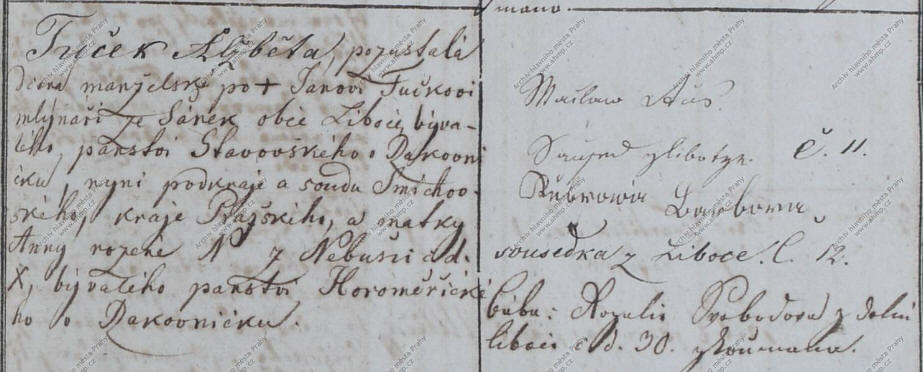 Tuček Alžběta, pozustalá
dcera manželská po + Janovi Tučkovi
mlýnáři ze Šárek obce Liboci, býva-
lého panství Stavovského o Rakovní
čku, nyní podkraje a soudu Smichov-
ského, kraje Pražského, a matky
Anny rozené N z Nebušic č d.
X, bývalého panství Horoměřické
ho v Rakovničku.
Waclaw
Saused zlibotze. č. 11.
Barbora
sousedka z Liboce. č. 12.
bába: Rozalie Svobodova z dolní
liboci č d. 30. zkoumana.